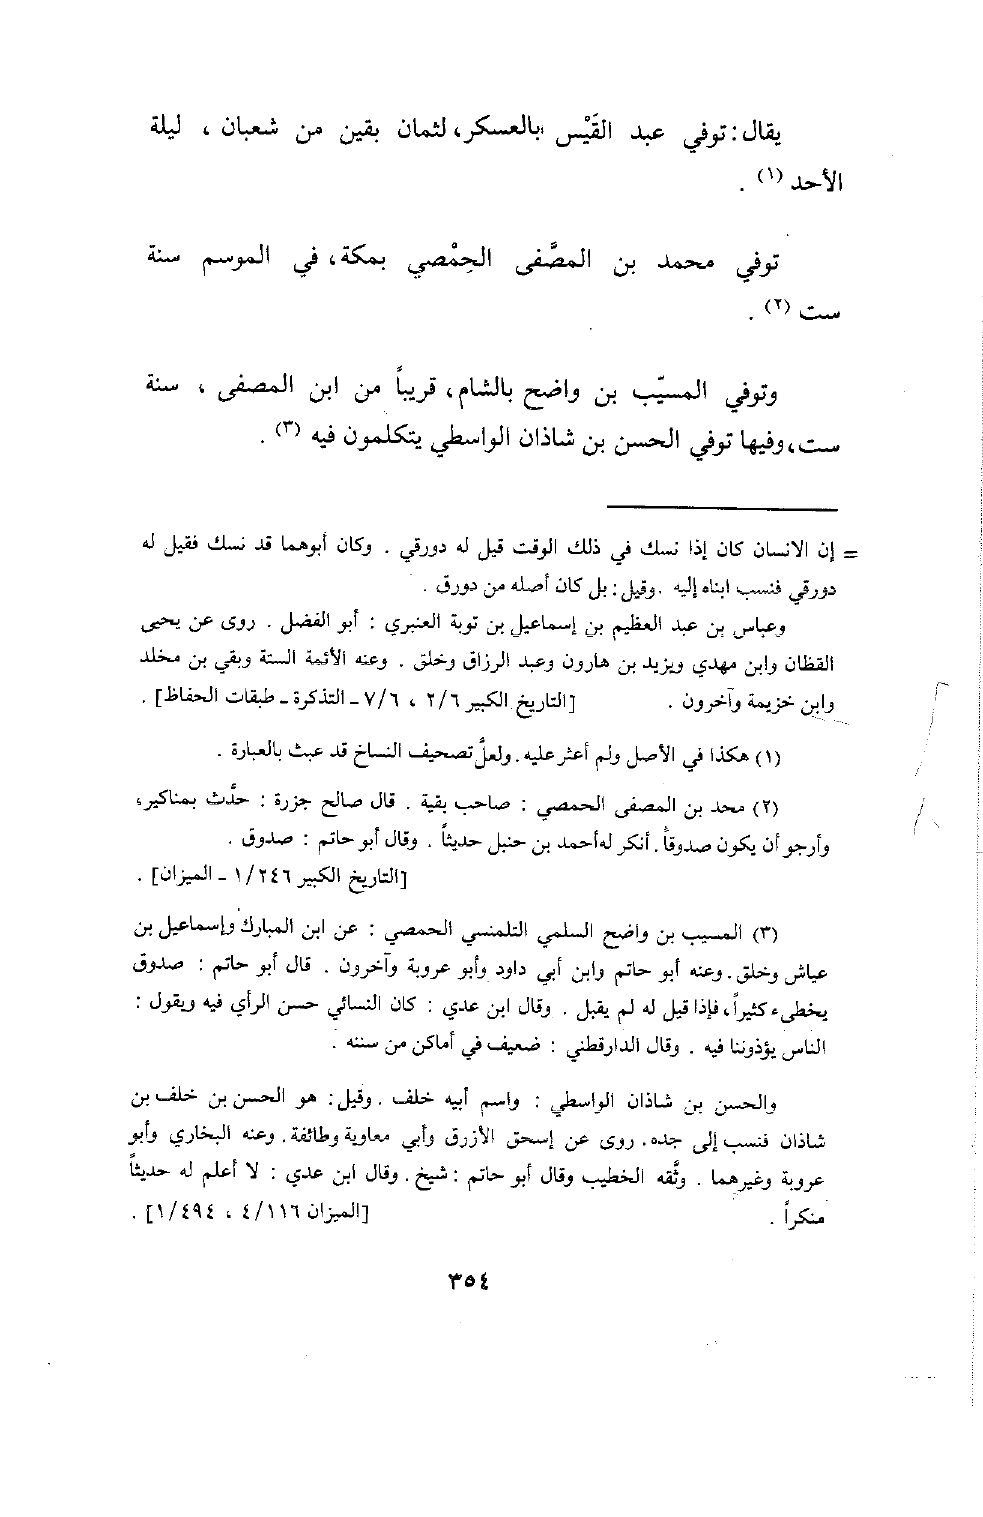 يقال : توفي عبد القَيْس بالعسكر، لثمان بقين من شعبان ، ليلة
الأحد (١) .
توفي محمد بن المصَّفى الحِمْصي بمكة، في الموسم سنة
ست (٢) .
وتوفي المسيّب بن واضح بالشام، قريباً من ابن المصفى ، سنة
ست، وفيها توفي الحسن بن شاذان الواسطي يتكلمون فيه (٣) .
= إن الانسان كان إذا نسك في ذلك الوقت قيل له دورقي . وكان أبوهما قد نسك فقيل له
دورقي فنسب ابناه إليه . وقيل : بل كان أصله من دورق .
وعباس بن عبد العظيم بن إسماعيل بن توبة العنبري : أبو الفضل . روى عن يحيى
القطان وابن مهدي ويزيد بن هارون وعبد الرزاق وخلق . وعنه الأئمة الستة وبقي بن مخلد
وابن خزيمة وآخرون . [التاريخ الكبير ٢/٦ ، ٧/٦ ـ التذكرة ـ طبقات الحفاظ] .
(١) هكذا في الأصل ولم أعثر عليه . ولعلَّ تصحيف النساخ قد عبث بالعبارة .
(٢) محد بن المصفى الحمصي : صاحب بقية . قال صالح جزرة : حدَّث بمناكير،
وأرجو أن يكون صدوقاً . أنكر له أحمد بن حنبل حديثاً . وقال أبو حاتم : صدوق .
[التاريخ الكبير ١/٢٤٦ ـ الميزان] .
(٣) المسيب بن واضح السلمي التلمنسي الحمصي : عن ابن المبارك وإسماعيل بن
عياش وخلق . وعنه أبو حاتم وابن أبي داود وأبو عروبة وآخرون . قال أبو حاتم : صدوق
يخطىء كثيراً، فإذا قيل له لم يقبل . وقال ابن عدي : كان النسائي حسن الرأي فيه ويقول :
الناس يؤذوننا فيه . وقال الدارقطني : ضعيف في أماكن من سننه .
والحسن بن شاذان الواسطي : واسم أبيه خلف . وقيل : هو الحسن بن خلف بن
شاذان فنسب إلى جده . روى عن إسحق الأزرق وأبي معاوية وطائفة . وعنه البخاري وأبو
عروبة وغيرهما . وثَّقه الخطيب وقال أبو حاتم : شيخ . وقال ابن عدي : لا أعلم له حديثاً
منكراً . [الميزان ٤/١١٦ ، ١/٤٩٤] .
٣٥٤